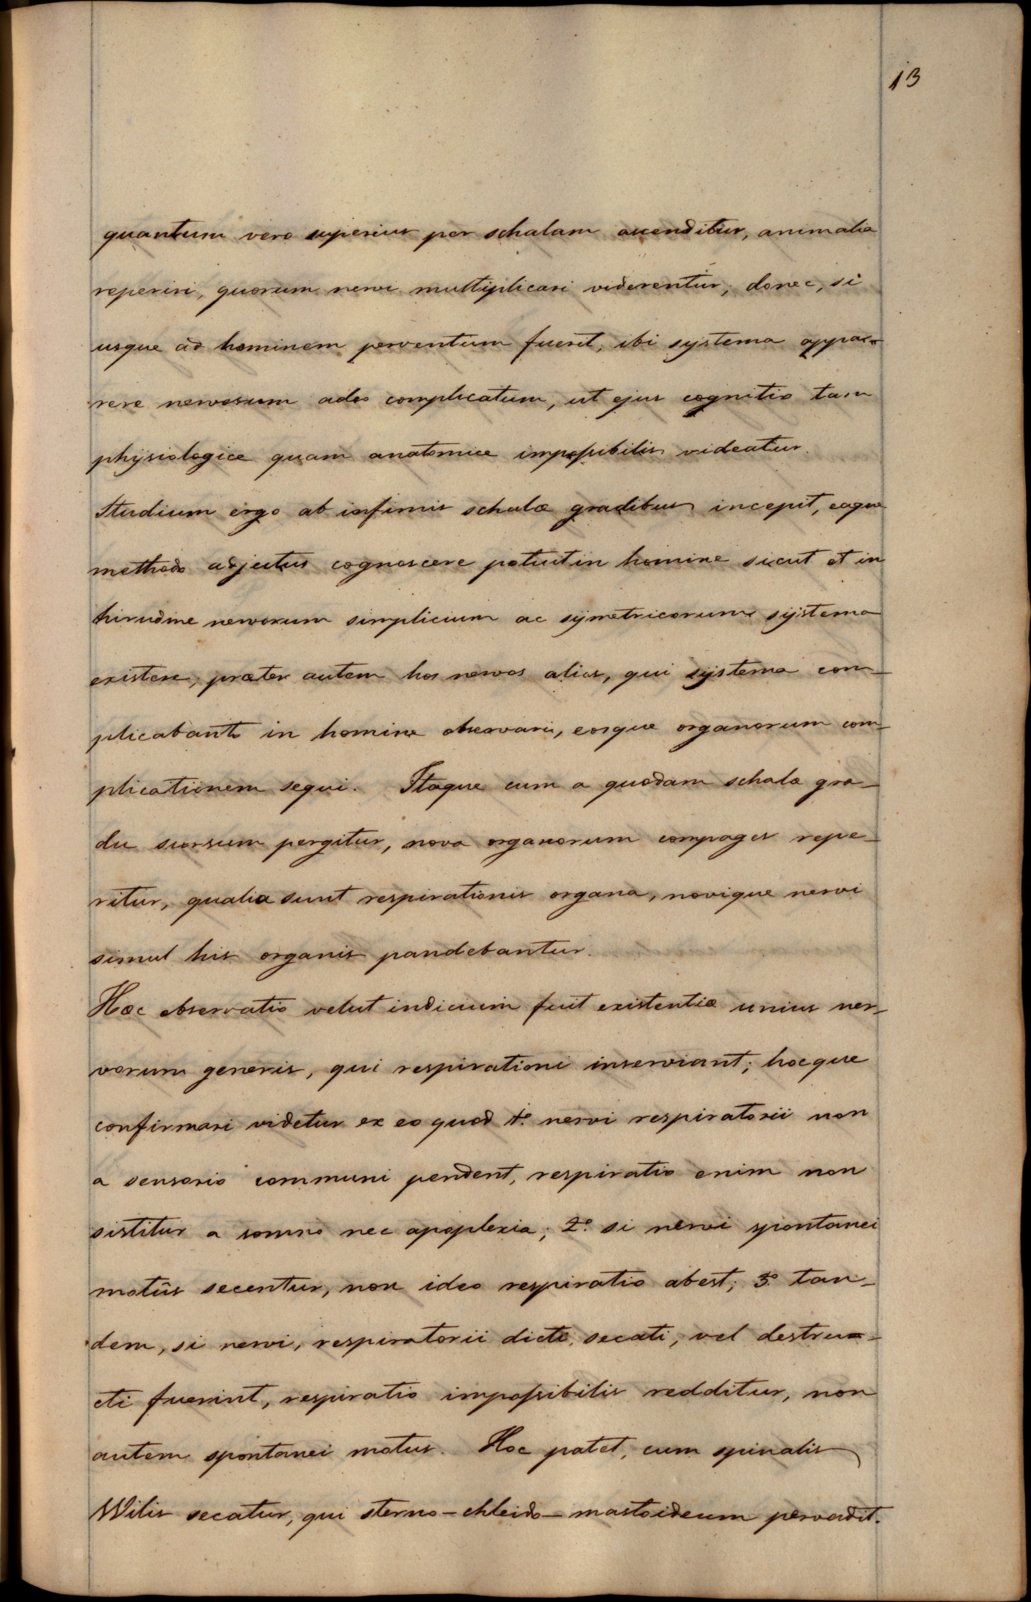 13
quantum vero superius per schalam ascenditur, animalia
reperiri, quorum nervi multiplicari viderentur; donec, si
usque ad hominem perventum fuerit, ibi systema appa-
rere nervosum adeo complicatum, ut ejus cognitio tam
physiologice quam anatomice impossibilis videatur.
Studium ergo ab infimis schalæ gradibus incepit, eaque
methodo adjectus cognoscere potuit in homine sicut et in
hirudine nervorum simplicium ac symetricorum systema
existere; præter autem hos nervos alios, qui systema com-
plicabant in homine observari, eosque organorum com-
plicationem sequi. Itaque cum a quodam schalæ gra-
du sursum pergitur, nova organorum compages repe-
ritur, qualia sunt respirationis organa, novique nervi
simul his organis pandebantur.
Hæc observatio velut indicium fuit existentiæ unius ner-
vorum generis, qui respirationi inserviant; hocque
confirmari videtur ex eo quod 1.º nervi respiratorii non
a sensorio communi pendent, respiratio enim non
sistitur a somno nec apoplexia; 2.º si nervi spontanei
motûs secentur, non ideo respiratio abest; 3.º tan-
dem, si nervi, respiratorii dicti, secati, vel destru-
cti fuerint, respiratio impossibilis redditur, non
autem spontanei motus. Hoc patet, cum spinalis
Wilis secatur, qui sterno-chleido-mastoideum pervadit.